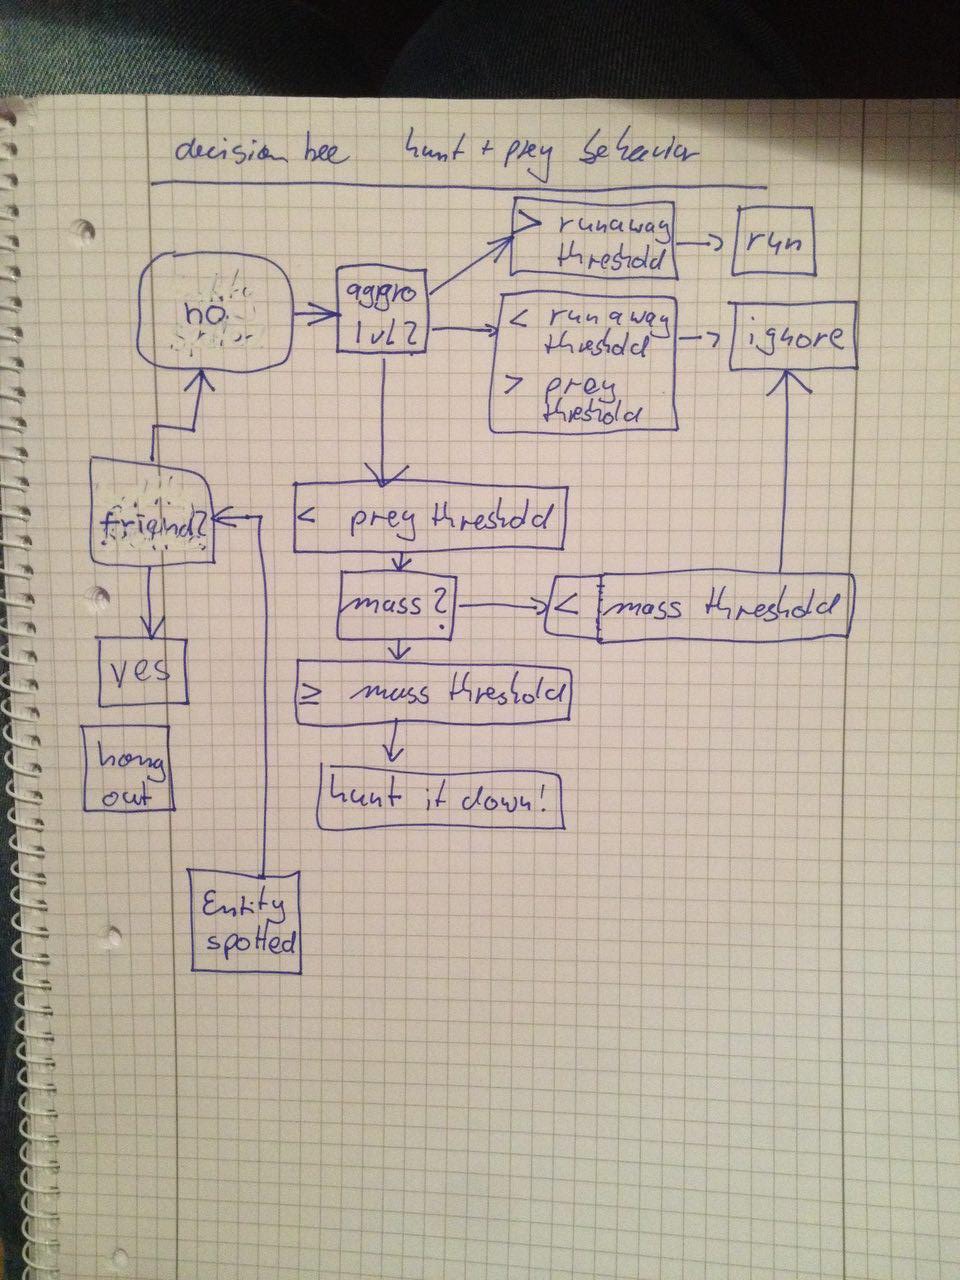 decision tree hunt + prey behavior
> runaway
threshold
run
no
aggro
lvl?
< runaway
threshold
> prey
threshold
ignore
friend?
< prey threshold
mass?
< mass threshold
yes
≥ mass threshold
hang
out
hunt it down!
Entity
spotted